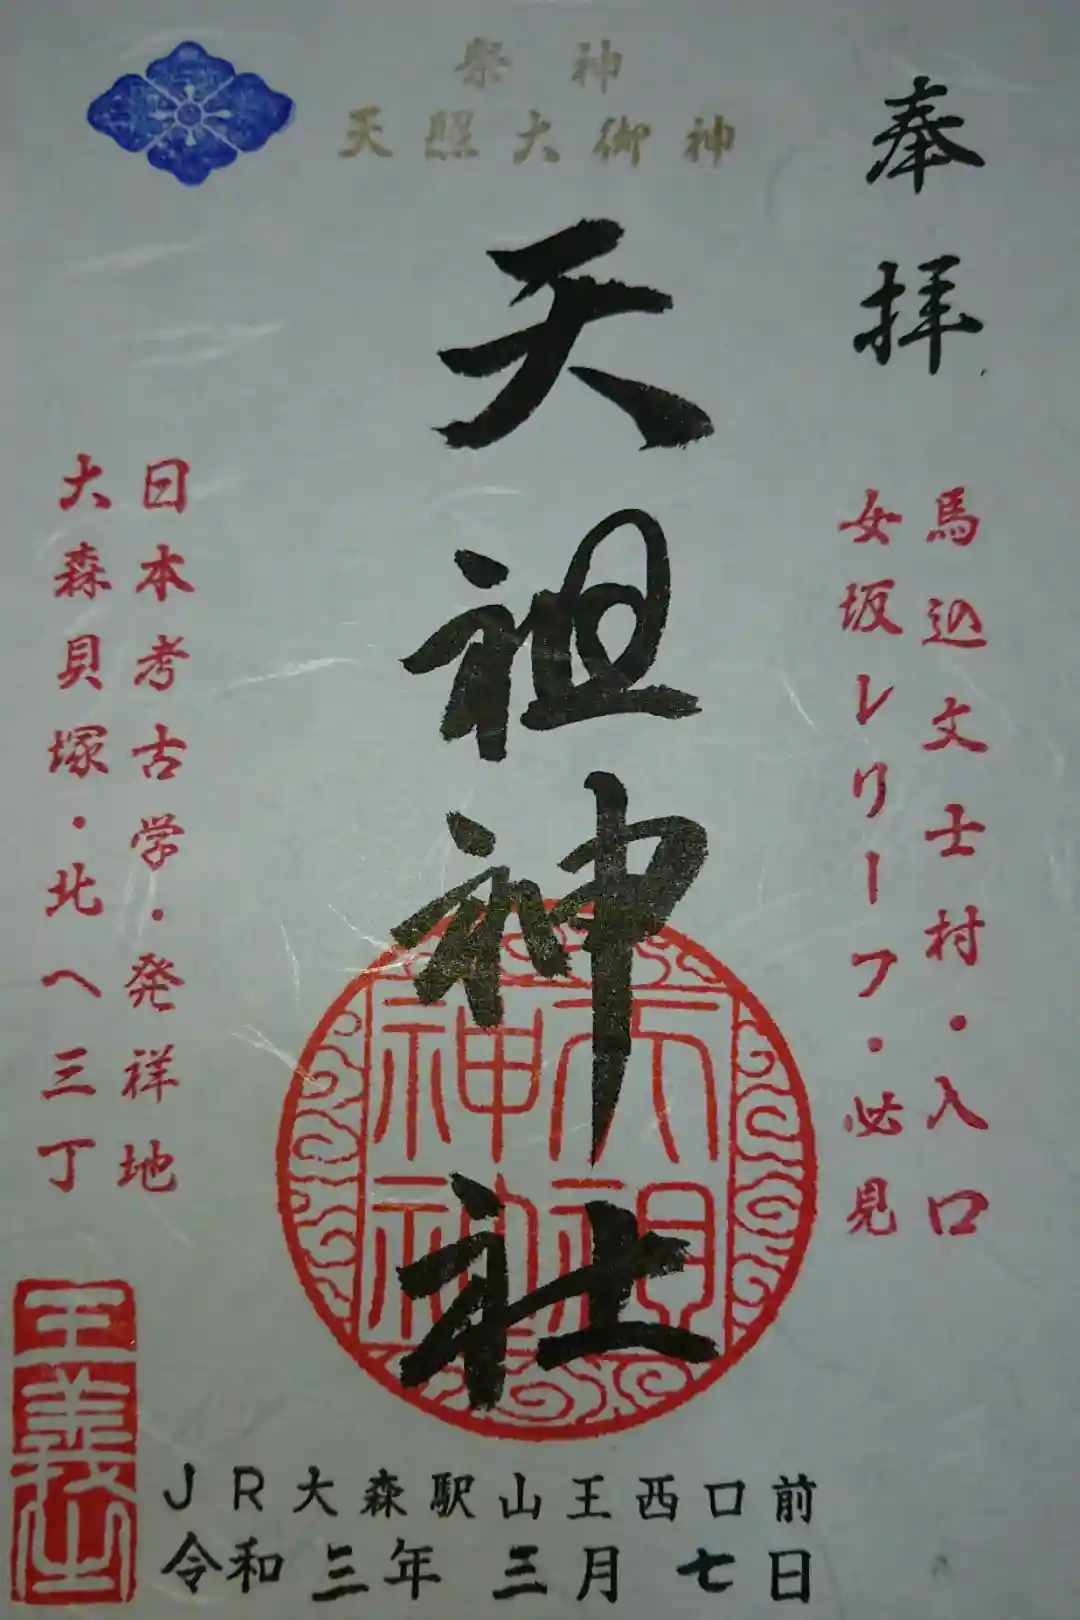 祭神
天照大御神
奉拝
馬込文士村・入口
女坂レリーフ・必見
天祖神社
天祖神社
日本考古学・発祥地
大森貝塚・北へ三丁
JR大森駅山王西口前
令和三年三月七日